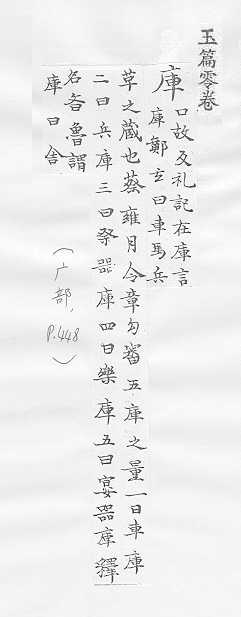 玉篇零卷
庫
口故及礼記在庫言
庫鄭玄曰車馬兵
草之蔵也蔡雍月令章勾審五庫之量一曰車庫
二曰兵庫三曰祭器庫四曰樂庫五曰宴器庫釋
名各魯謂
庫曰舍
(广部, P.448)